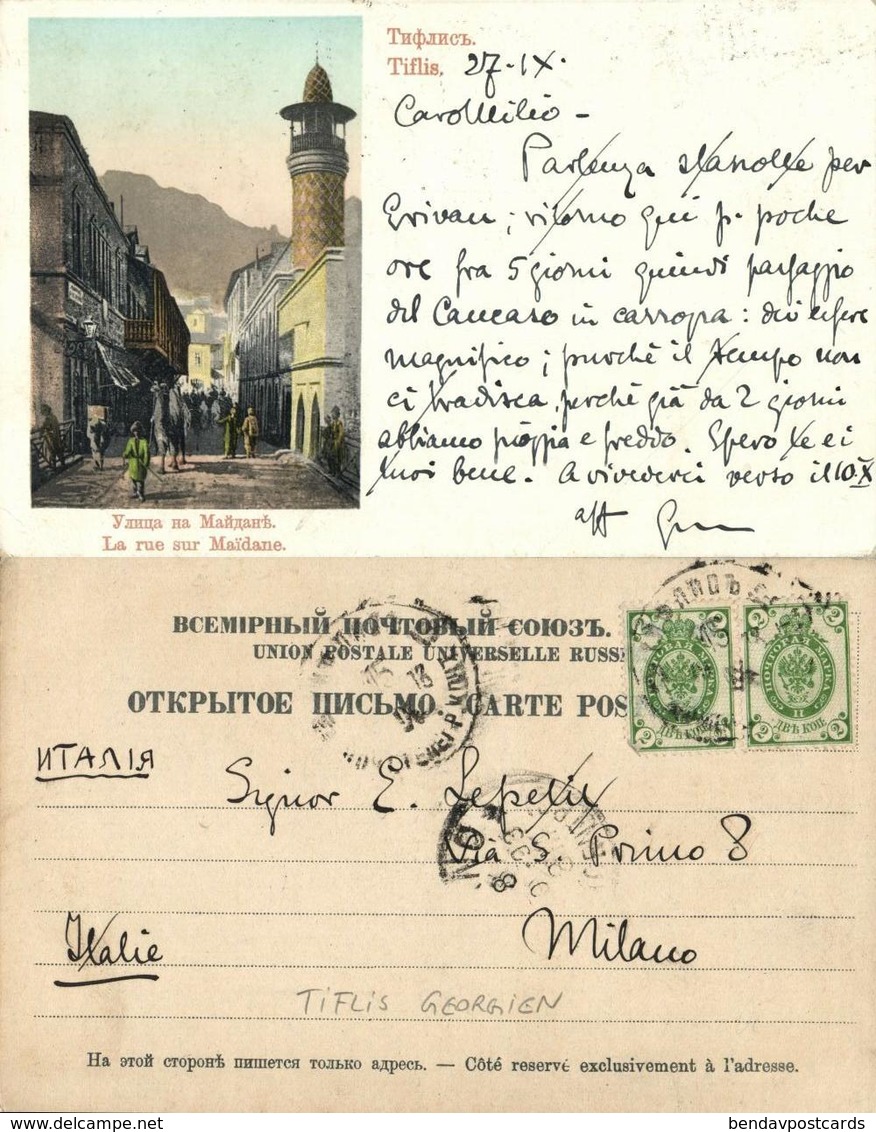 Тифлисъ.
Tiflis. 27-IX.
Caro Milio -
Partenza stanotte per
Erivan; ritorno qui p. poche
ore fra 5 giorni quindi passaggio
del Caucaso in carrozza: dev'essere
magnifico; purchè il tempo non
ci tradisca, perchè già da 2 giorni
abbiamo pioggia e freddo. Spero te e i
tuoi bene. Arivederci verso il 10.X
aff
Улица на Майданѣ.
La rue sur Maïdane.
ВСЕМІРНЫЙ ПОЧТОВЫЙ СОЮЗЪ.
UNION POSTALE UNIVERSELLE RUSSI
ОТКРЫТОЕ ПИСЬМО. CARTE POS
ПОЧТОВАЯ МАРКА
II
ДВѢ КОП.
2 2
ИТАЛІЯ
Signor E. Lepetit
Via S. Primo 8
Italie
Milano
TIFLIS GEORGIEN
На этой сторонѣ пишется только адресъ. — Côté reservé exclusivement à l'adresse.
bendavpostcards